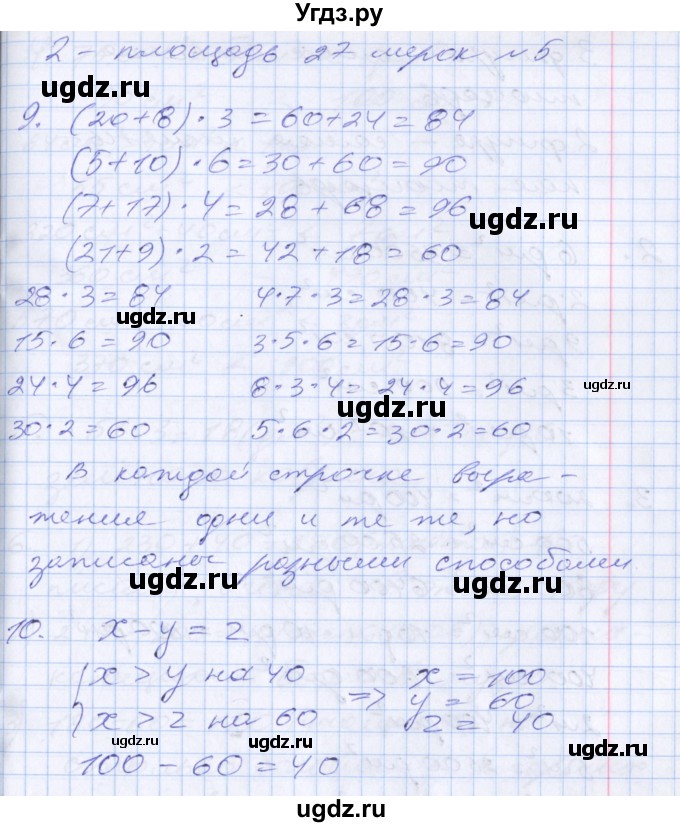 Угдз.ру
2 - площадь 27 мерок №5
ugdz.ru
9. (20+8)·3=60+24=84
(5+10)·6=30+60=90
(7+17)·4=28+68=96
ugdz.ru
(21+9)·2=42+18=60
28·3=84 4·7·3=28·3=84
ugdz.ru
15·6=90 3·5·6=15·6=90
ugdz.ru
24·4=96 8·3·4=24·4=96
ugdz.ru
ugdz.ru
30·2=60 5·6·2=30·2=60
В каждой строчке выра-
жения одни и те же, но
записаны разными способами
ugdz.ru
ugdz.ru
10. x-y=z
x>y на 40 => x=100
y=60
x>z на 60 z=40
ugdz.ru
ugdz.ru
ugdz.ru
100-60=40
ugdz.ru